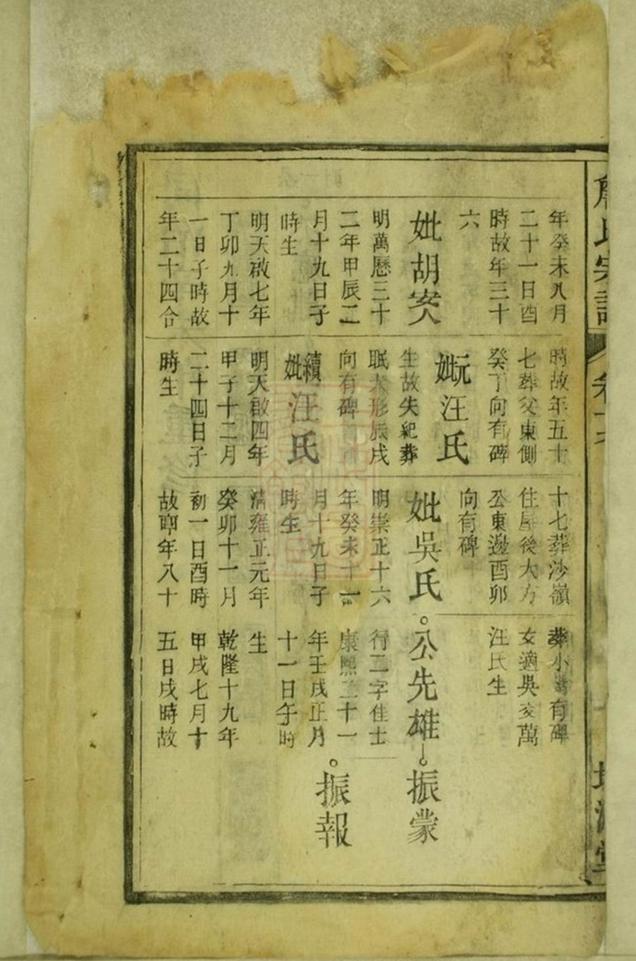 氏宗譜
卷十
堂
年癸未八月
二十一日酉
時故年三十
六
妣胡安
明萬曆三十
二年甲辰二
月十九日子
時生
明天啟七年
丁卯九月十
一日子時故
年二十四合
時故年五十
七葬父東側
癸丁向有碑
元妣汪氏
生故失紀葬
眠犬形辰戌
向有碑
續妣汪氏
明天啟四年
甲子十二月
二十四日子
時生
十七葬沙嶺
住屋後大方
公東邊酉卯
向有碑
妣吳氏
明崇正十六
年癸未十一
月十九日子
時生
清雍正元年
癸卯十一月
初一日酉時
故年八十
葬小有碑
女適吳亥萬
汪氏生
公先雄
行二字佳士
康熙二十一
年壬戌正月
十一日午時
生
乾隆十九年
甲戌七月十
五日戌時故
振蒙
振報